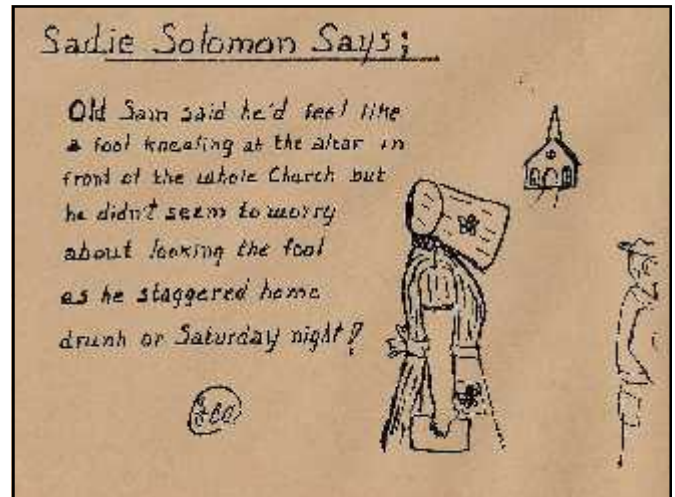 Sadie Solomon Says;
Old Sam said he'd feel like
a fool kneeling at the altar in
front of the whole Church but
he didn't seem to worry
about looking the fool
as he staggered home
drunk or Saturday night!